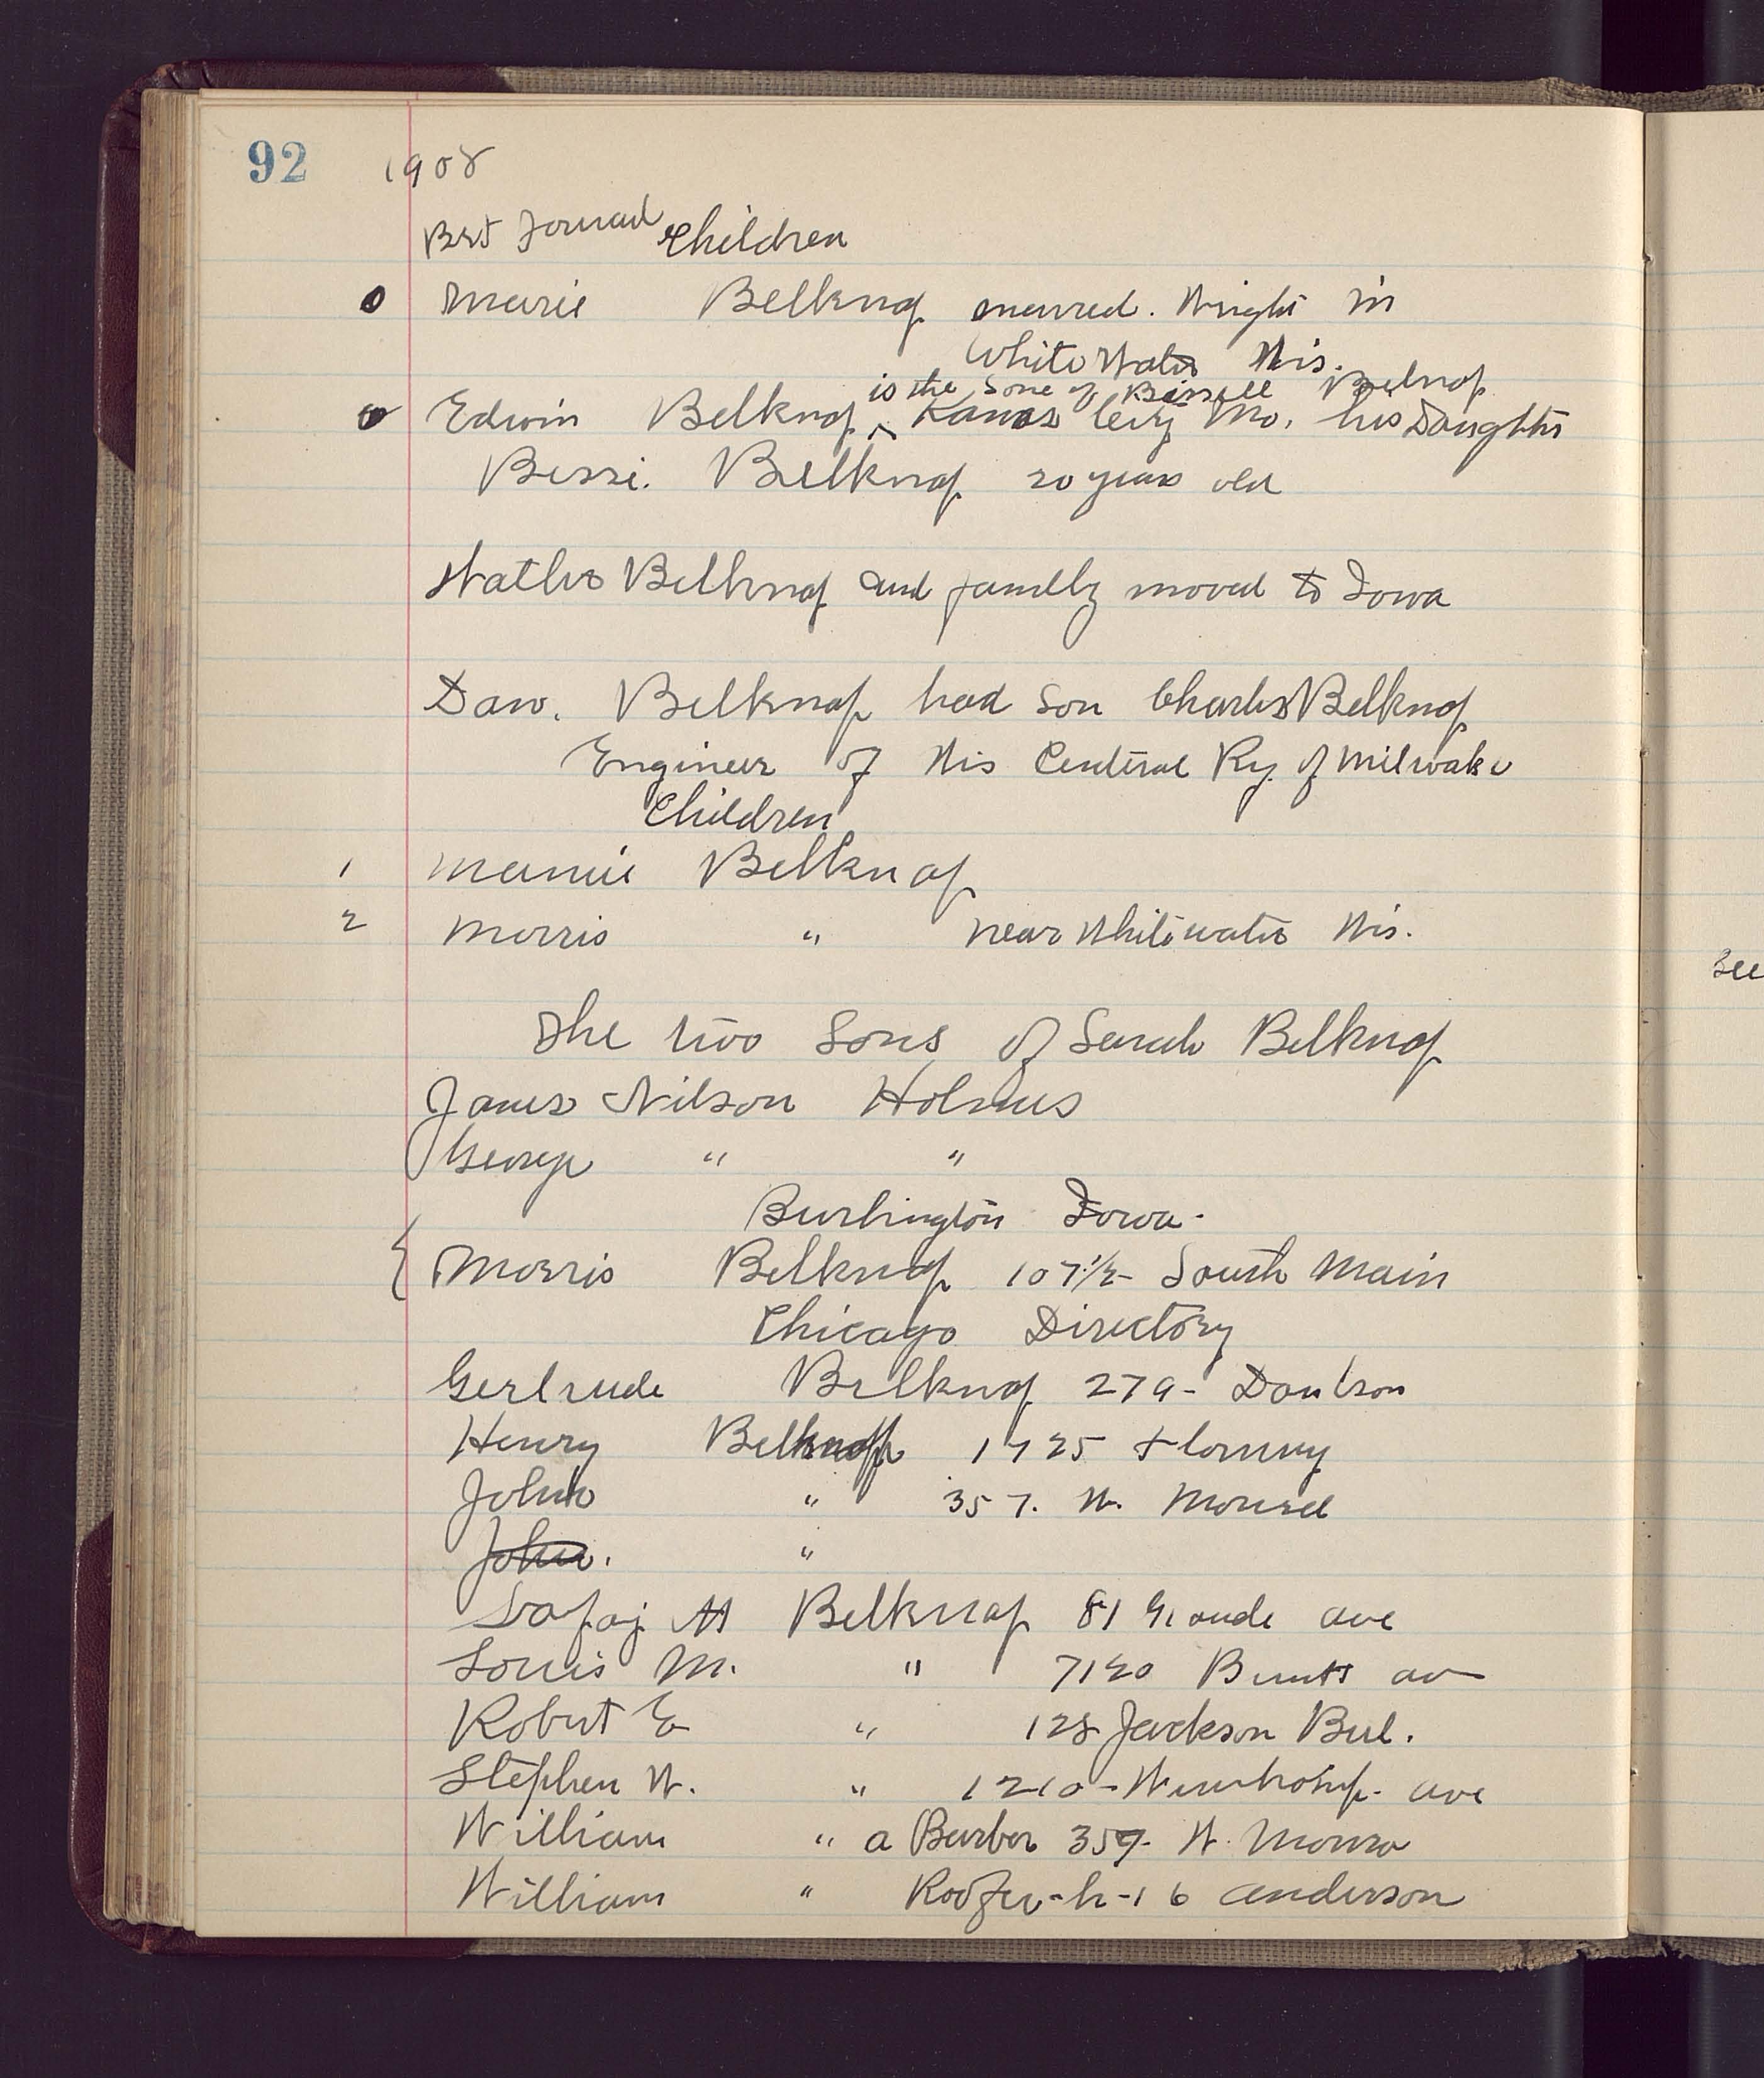 92 1908
Children
Marie Belknap married. Wright in
White Water Wis.
is the Sone of Bissell Belnap
Edwin Belknap Kansas City Mo. his Daughter
Bessi. Belknap 20 years old
Walter Belknap and familly moved to Iowa
Dan. Belknap had Son Charles Belknap
Engineer of Wis Central Ry of Milwake
Children
1 Mamie Belknap
2 Morris " near Whitewater Wis.
The two Sons of Sarah Belknap
James Wilson Holmes
George " "
Burlington Iowa.
Morris Belknap 107 1/2 - South Main
Chicago Directory
Gertrude Belknap 279 -
Henry Belknap 1725
John " 357. W.
John. "
Belknap 81 ave
Louis M. " 7120 av
Robert E " 128 Jackson Bul.
Stephen W. " 1210 - ave
William " a Barber 357 - W. Monro
William " Roofer - h - 16 Anderson
See